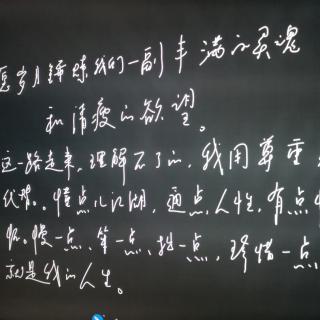 愿岁月锤炼我们一副丰满的灵魂
和清瘦的欲望。
这一路走来,理解不了的,我用尊重
代替。懂点儿江湖,通点人性,有点
慢一点,笨一点,拙一点,珍惜一点,
就是我的人生。